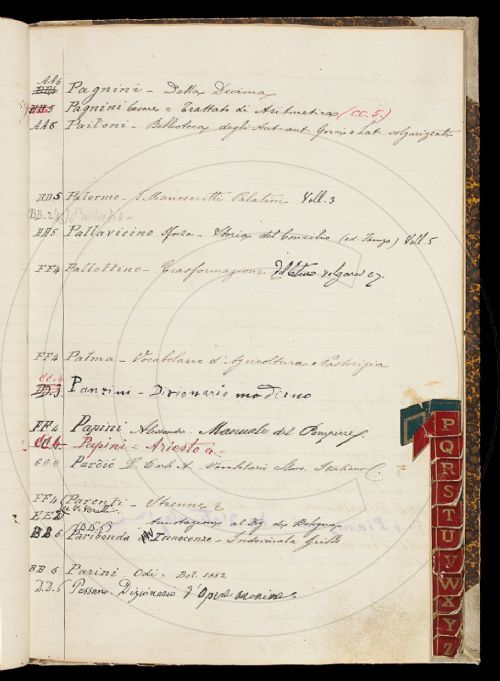 AA6
Pagnini - Della Decima
HH5 Pagnini Cesare = Trattato di Aritmetica (CC.5)
AA6 Paitoni - Biblioteca degli Aut. ant. Greci e Lat. volgarizzati
DD5 Palermo - I Manoscritti Palatini Voll. 3
BB.2
HH5 Pallavicino Sforza - Storia del Concilio (ed Faenza) Voll. 5
FF4 Pallottino - Trasformazione
FF4 Palma - Vocabolario d'Agricoltura e Pastorizia
CC.4
DD.3 Panzini - Dizionario moderno
FF4 Papini Alessandro - Manuale del Pompiere
CC6 - Papini = Ariosto
Parcic D. Carlo A. Vocabolario Slavo Italiano
FF4 Parenti - Strenne
EE Annotazioni al Diz. di Bologna
BB.6
BB6 Paribonda Innocenzo - Indovinala Grillo
BB6 Parini Odi. Bol. 1852
D.D.6 Passano. Dizionario d'Opere anonime
P
Q
R
S
T
U
V
W
X
Y
Z